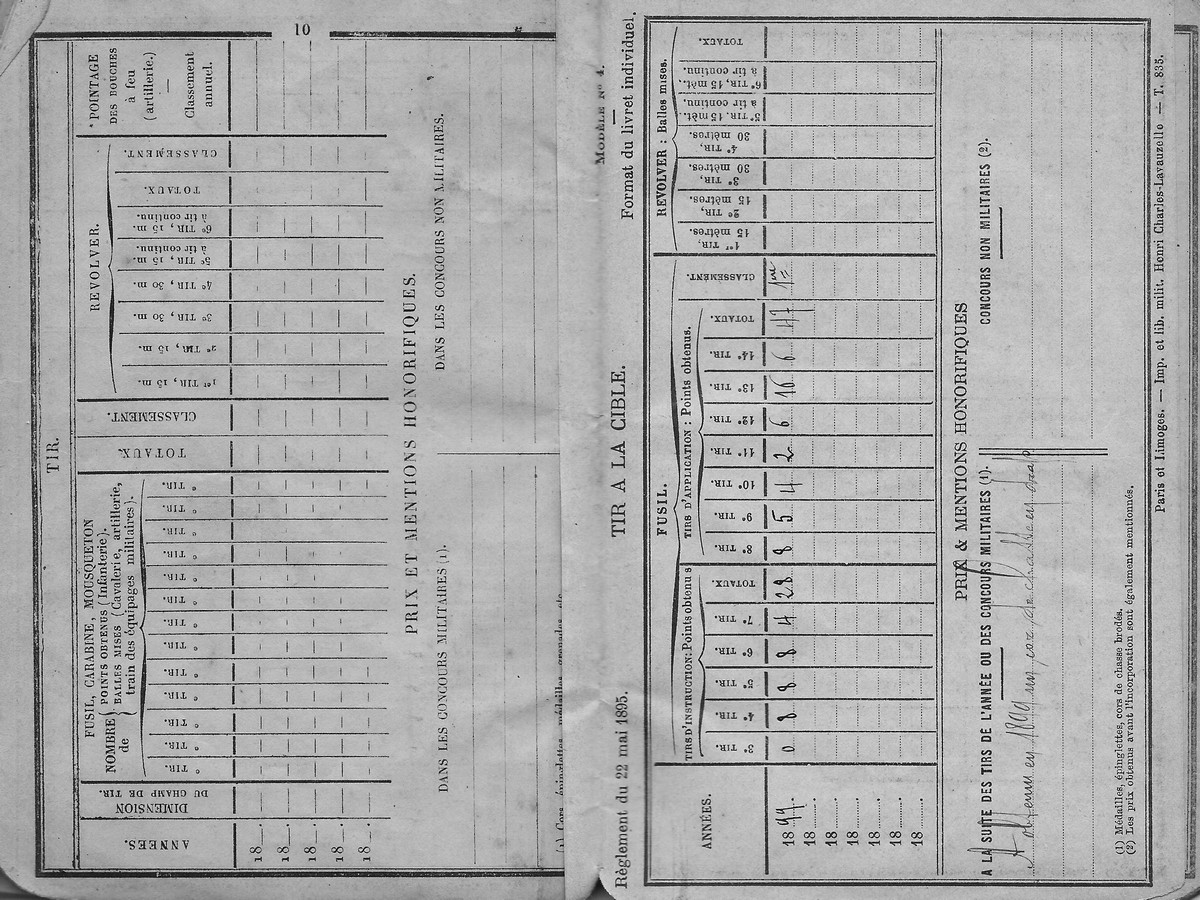 10
TIR.
ANNÉES.
DIMENSION
DU CHAMP DE TIR.
FUSIL, CARABINE, MOUSQUETON
NOMBRE de
POINTS OBTENUS (Infanterie).
BALLES MISES (Cavalerie, artillerie,
train des équipages militaires).
e TIR.
e TIR.
e TIR.
e TIR.
e TIR.
e TIR.
e TIR.
e TIR.
e TIR.
e TIR.
e TIR.
e TIR.
e TIR.
TOTAUX.
CLASSEMENT.
REVOLVER.
1er TIR, 15 m.
2e TIR, 15 m.
3e TIR, 30 m.
4e TIR, 30 m.
5e TIR, 15 m.
à tir continu.
6e TIR, 15 m.
à tir continu.
TOTAUX.
CLASSEMENT.
*POINTAGE
DES BOUCHES
à feu
(artillerie.)
—
Classement
annuel.
18
18
18
18
18
PRIX ET MENTIONS HONORIFIQUES.
DANS LES CONCOURS MILITAIRES (1).
DANS LES CONCOURS NON MILITAIRES.
Règlement du 22 mai 1895.
TIR A LA CIBLE.
MODÈLE No 4.
Format du livret individuel.
ANNÉES.
FUSIL.
TIRS D'INSTRUCTION: Points obtenus
3e TIR.
4e TIR.
5e TIR.
6e TIR.
7e TIR.
TOTAUX.
TIRS D'APPLICATION : Points obtenus.
8e TIR.
9e TIR.
10e TIR.
11e TIR.
12e TIR.
13e TIR.
14e TIR.
TOTAUX.
CLASSEMENT.
REVOLVER : Balles mises.
1er TIR,
15 mètres.
2e TIR,
15 mètres.
3e TIR,
30 mètres.
4e TIR,
30 mètres.
5e TIR, 15 mèt.
à tir continu.
6e TIR, 15 mèt.
à tir continu.
TOTAUX.
1899 0 8 8 8 4 28 8 5 4 2 6 16 6 47 1re
18
18
18
18
18
18
PRIX & MENTIONS HONORIFIQUES
A LA SUITE DES TIRS DE L'ANNÉE OU DES CONCOURS MILITAIRES (1).
CONCOURS NON MILITAIRES (2).
A obtenu en 1899 un cor de chasse en drap
(1) Médailles, épinglettes, cors de chasse brodés.
(2) Les prix obtenus avant l'incorporation sont également mentionnés.
Paris et Limoges. — Imp. et lib. milit. Henri Charles-Lavauzelle — T. 835.